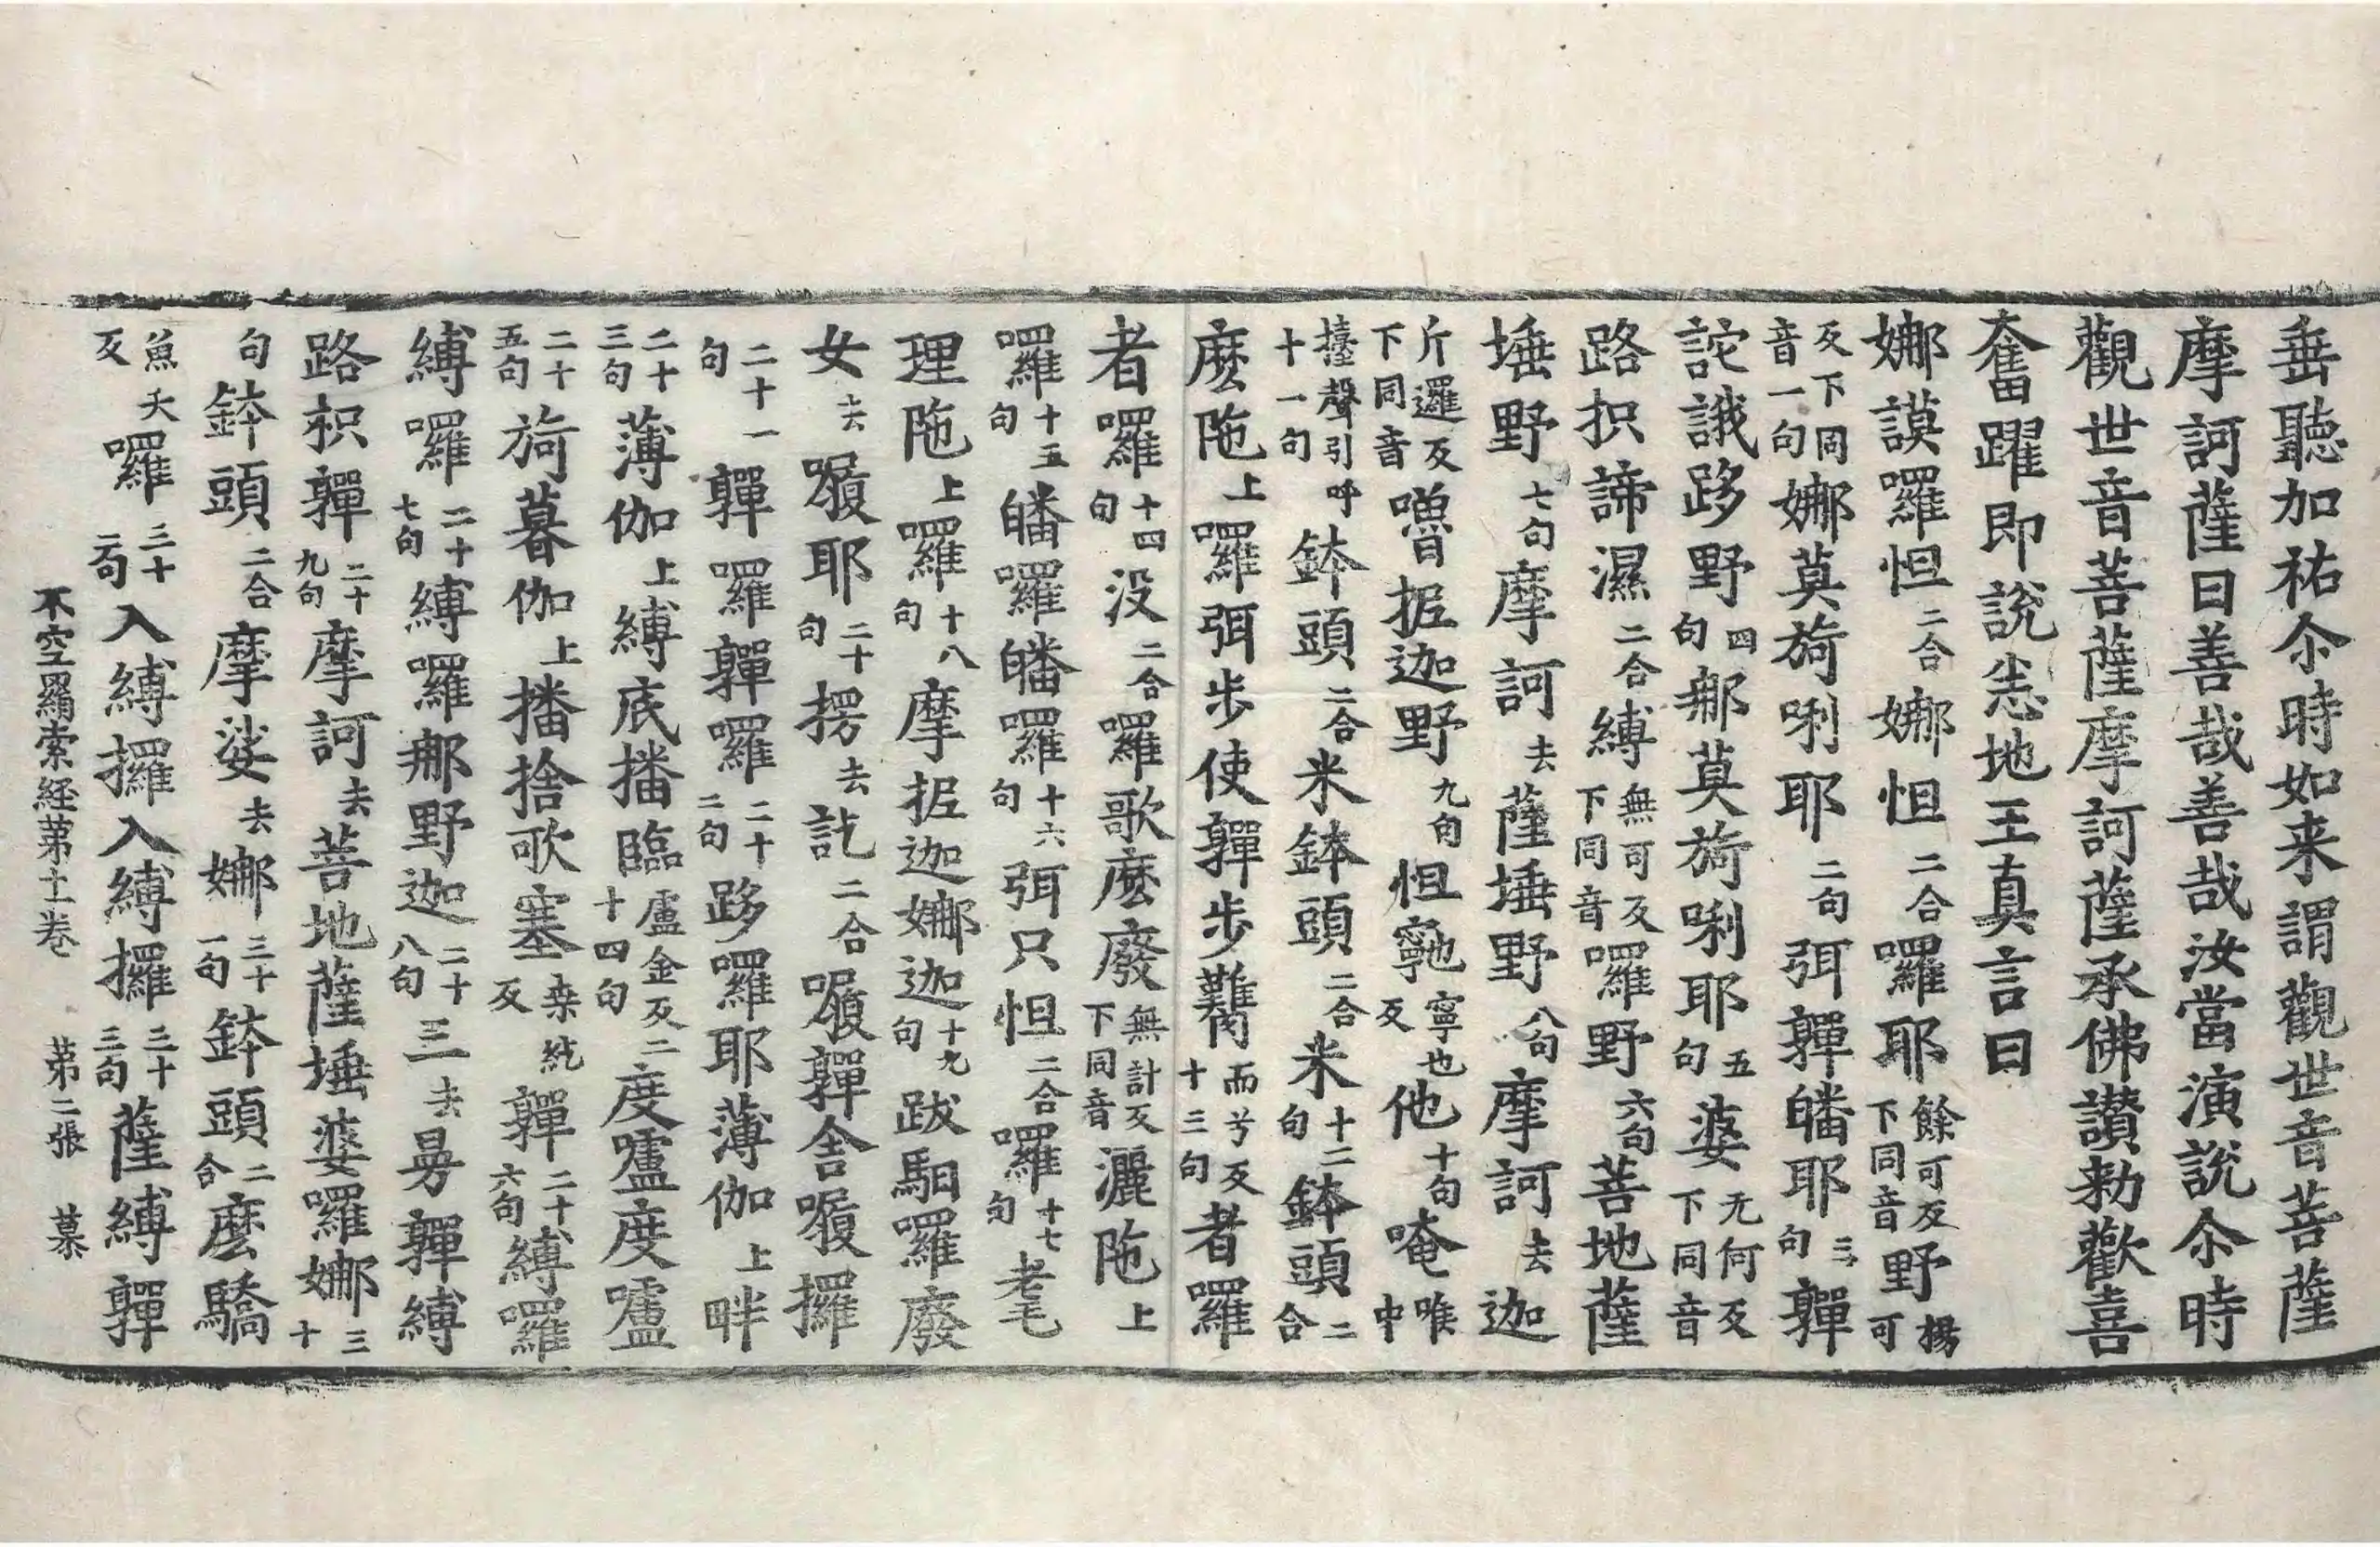 垂聽加祐尒時如来謂觀世音菩薩
摩訶薩曰善哉善哉汝當演說尒時
觀世音菩薩摩訶薩承佛讃勑歡喜
奮躍即說悉地王真言曰
娜謨囉怛二合娜怛二合囉耶餘可反下同音野楊可
反下同音一句娜莫旖唎耶二句弭嚲皤耶三句嚲
詑誐跢野四句那莫旖唎耶五句婆无何反下同音
路抧諦濕二合縛無可反下同音囉野六句菩地薩
埵野七句摩訶去薩埵野八句摩訶去迦
斤邏反下同音嚕抳迦野九句怛寧也反他十句唵喉中
擡聲引呼十一句鉢頭二合米鉢頭二合米十二句鉢頭二合
麽陁上囉弭步使嚲步而兮反十三句者囉
者囉十四句没二合囉歌麽廢無計反下同音灑陁上
囉十五句皤囉皤囉十六句弭只怛二合囉十七句
理陁上囉十八句摩抳迦娜迦十九句跋馹囉廢
女去囑耶二十句楞去訖二合嚲舍攞
二十一句嚲囉嚲囉二十二句跢囉耶薄伽上畔
二十三句薄伽上縛底播臨盧金反二十四句度嚧度嚧
二十五句旖暮伽上播捨歌塞桒紇反嚲二十六句縛囉
縛囉二十七句縛囉那野迦二十八句三去曼嚲縛
路枳嚲二十九句摩訶去菩地薩埵婆囉娜三十
句鉢頭二合摩娑去娜三十一句鉢頭二合麽驕
魚夭反囉三十二句入縛攞入縛攞三十三句薩縛嚲
不空羂索経苐十二卷 苐二張 慕